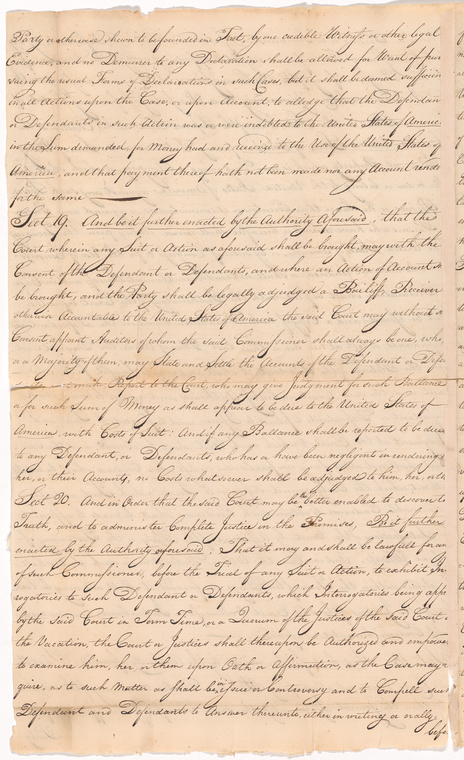 Party or otherwise shewn to be founded in Fact, by one credible Witness or other legal
Evidence, and no Demurrer to any Declaration shall be allowed for Want of pur
suing the usual Forms of Declarations in such Cases, but it shall be deemed sufficien
in all Actions upon the Case, or upon Account, to alledge that the Defendan
or Defendants in such Action was or were indebted to the United States of Americ
in the Sum demanded, for Money had and received to the Use of the United States of
America, and that payment thereof hath not been made nor any Account rende
for the same
Sect 19. And be it further enacted by the Authority aforesaid, that the
Court wherein any Suit or Action as aforesaid shall be brought, may with the
Consent of the Defendant or Defendants, and where an Action of Account s
be brought, and the Party shall be legally adjudged a Bailiff, Receiver
otherwise Accountable to the United States of America the said Court may without s
Consent appoint Auditors of whom the said Commissioner shall always be one, who
or a Majority of them, may State and Settle the Accounts of the Defendant or Defen
make Report to the Court, who may give Judgment for such Ballance
or for such Sum of Money as shall appear to be due to the United States of
America, with Costs of Suit: And if any Ballance shall be reported to be due
to any Defendant, or Defendants, who has or have been negligent in rendering h
her, or their Accounts, no Costs whatsoever shall be adjudged to him, her, or th
Sect 20. And in Order that the said Court may be the better enabled to discover th
Truth, and to administer Complete Justice in the Premises, Be it further
enacted by the Authority aforesaid. That it may and shall be lawfull for an
of such Commissioner, before the Trial of any Suit or Action, to exhibit In
rogatories to such Defendant or Defendants, which Interrogatories being appr
by the said Court in Term Time, or a Quorum of the Justices of the said Court
the Vacation, the Court or Justices shall thereupon be Authorized and impower
to examine him, her or them upon Oath or Affirmation, as the Case may re
quire, as to such Matter as shall be in Issue or Controversy and to Compell such
Defendant and Defendants to Answer thereunto, either in writing or orally
befo